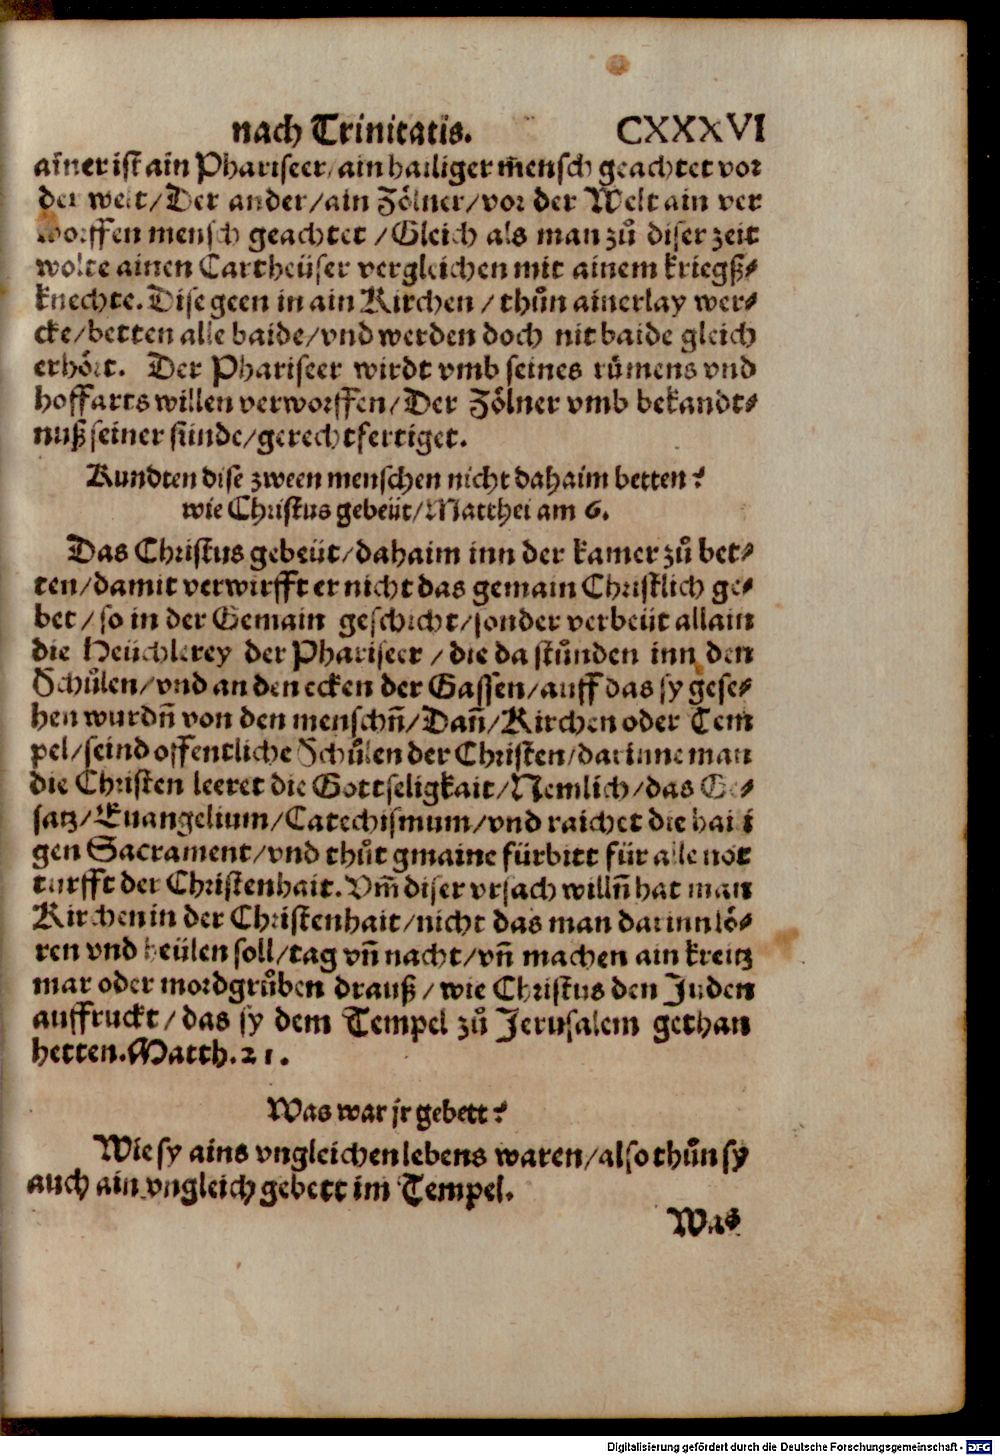 nach Trinitatis. CXXXVI
ainer ist ain Phariseer/ain hailiger m̃ensch geachtet vor
der welt/Der ander/ain Zölner/vor der Welt ain ver
worffen mensch geachtet/Gleich als man zů diser zeit
wolte ainen Cartheüser vergleichen mit ainem kriegß⸗
knechte. Dise geen in ain Kirchen/thůn ainerlay wer⸗
cke/betten alle baide/vnd werden doch nit baide gleich
erhört. Der Phariseer wirdt vmb seines růmens vnd
hoffarts willen verworffen/Der Zölner vmb bekandt⸗
nuß seiner sünde/gerechtfertiget.
Kundten dise zween menschen nicht dahaim betten?
wie Christus gebeüt/Matthei am 6.
Das Christus gebeüt/dahaim inn der kamer zů bet⸗
ten/damit verwirfft er nicht das gemain Christlich ge⸗
bet/so in der Gemain geschicht/sonder verbeüt allain
die Heüchlerey der Phariseer/die da stůnden inn den
Schůlen/vnd an den ecken der Gassen/auff das sy gese⸗
hen wurdn̄ von den menschn̄/Dan̄/Kirchen oder Tem
pel/seind offentliche Schůlen der Christen/darinne man
die Christen leeret die Gottseligkait/Nemlich/das Ge⸗
satz/Euangelium/Catechismum/vnd raichet die haili
gen Sacrament/vnd thůt gmaine fürbitt für alle not
turfft der Christenhait. Vm̄ diser vrsach willn̄ hat man
Kirchen in der Christenhait/nicht das man darinn lö⸗
ren vnd heülen soll/tag vn̄ nacht/vn̄ machen ain kreitz
mar oder mordgrůben drauß/wie Christus den Juden
auffruckt/das sy dem Tempel zů Jerusalem gethan
hetten. Matth. 21.
Was war jr gebett?
Wie sy ains vngleichen lebens waren/also thůn sy
auch ain vngleich gebett im Tempel.
Was
Digitalisierung gefördert durch die Deutsche Forschungsgemeinschaft - DFG